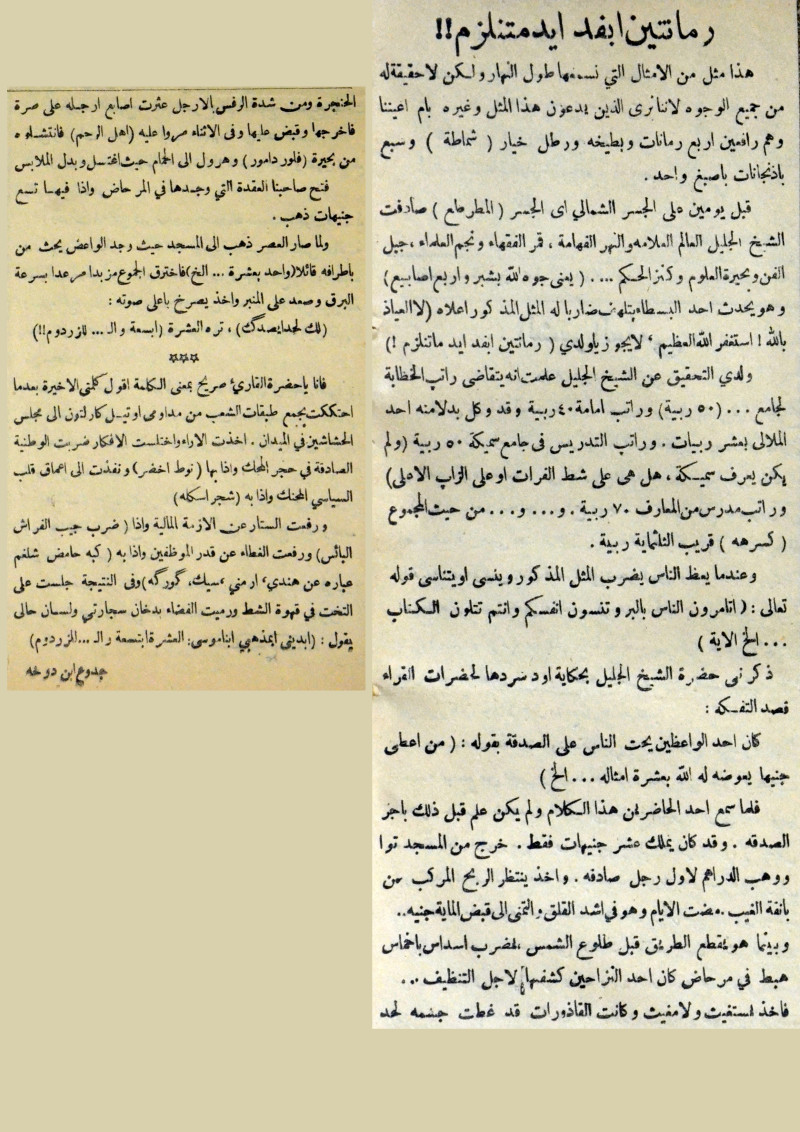 رمانتين ابفد ايد متنلزم!!
هذا مثل من الامثال التي نسمعها طول النهار ولكن لاحقيقة له
من جميع الوجوه لاننا نرى الذين يدعون هذا المثل وغيره بام اعيننا
وهم رافعين اربع رمانات وبطيخه ورطل خيار ( شماطة ) وسبع
باذنجانات باصبغ واحد .
قبل يومين على الجسر الشمالي اى الجسر ( المطرطع ) صادفت
الشيخ الجليل العالم العلامه والنهر الفهامة ، قمر الفقهاء ونجم العلماء ، جبل
الفن وبحيرة العلوم وكنز الحكم ... . ( يعنى جوه لله بشبر واربع اصابيع )
وهو يحدث احد البسطاء بتلهف ضاربا له المثل المذكور اعلاه ( لا العياذ
بالله ! استغفر الله العظيم ، لايجوز ياولدي ( رمانتين ابفد ايد ماتنلزم ! )
ولدي التحقيق عن الشيخ الجليل علمت انه يتقاضى راتب الخطابة
لجامع ... ( ٥٠ ربية ) وراتب امامة ٤٠ ربية وقد وكل بدلا منه احد
الملالى بعشر ربيات . وراتب التدريس فى جامع سميكة ٥٠ ربية ( ولم
يكن يعرف سميكة ، هل هى على شط الفرات او على الزاب الاعلى )
وراتب مدرس من المعارف ٧٠ ربية . و... و... من حيث المجموع
( كسرهه ) قريب الثلثماية ربية .
وعندما يعظ الناس يضرب المثل المذكور وينسى او يتناسى قوله
تعالى : ( اتامرون الناس بالبر وتنسون انفسكم وانتم تتلون الكتاب
... الخ الاية )
ذكرنى حضرة الشيخ الجليل بحكاية اود سردها لحضرات القراء
قصد التفكه :
كان احد الواعظين يحث الناس على الصدقة بقوله : ( من اعطى
جنيها يعوضه له الله بعشرة امثاله ... الخ )
فلما سمع احد الحاضرين هذا الكلام ولم يكن علم قبل ذلك باجر
الصدقه . وقد كان يملك عشر جنيهات فقط . خرج من المسجد توا
ووهب الدراهم لاول رجل صادفه . واخذ ينتظر الربح المركب من
بانقة الغيب . مضت الايام وهو فى اشد القلق والتمنى الى قبض الماية جنيه..
وبينما هو يقطع الطريق قبل طلوع الشمس ، يضرب اسداس باخماس
هبط في مرحاض كان احد النزاحين كشفها لاجل التنظيف ...
فاخذ يستغيث ولا مغيث وكانت القاذورات قد غطت جسمه لحد
الحنجرة ومن شدة الرفس بالارجل عثرت اصابع ارجله على صرة
فاخرجها وقبض عليها وفى الاثناء مروا عليه ( اهل الرحم ) فانتشلوه
من بحيرة ( فلور دامور ) وهرول الى الحمام حيث اغتسل وبدل الملابس
فتح صاحبنا العقدة التي وجدها في المرحاض واذا فيها تسع
جنيهات ذهب .
ولما صار العصر ذهب الى المسجد حيث وجد الواعض يحث من
باطرافه قائلا ( واحد بعشرة ... الخ ) فاخترق الجموع مزبدا مرعدا بسرعة
البرق وصعد على المنبر واخذ يصرخ باعلى صوته :
( لك لحد ايصدگك ) ، تره العشرة ( ابتسعة والـ ... الزردوم !! )
***
فانا ياحضرة القارئ صريح بمعنى الكلمة اقول كلمتى الاخيرة بعدما
احتككت بجميع طبقات الشعب من مداومى اوتيل كارلتون الى مجلس
الحشاشين في الميدان . اخذت الاراء واختلست الافكار ضربت الوطنية
الصادقة في حجر المحك واذا بها ( نوط اخضر ) ونفذت الى اعماق قلب
السياسي المحنك واذا به ( شجر اسكله )
ورفعت الستار عن الازمة المالية واذا ( ضرب جيب الفراش
البائس ) ورفعت الغطاء عن قدر الموظفين واذا به ( كبه حامض شلغم
عباره عن هندي ، ارمني ، سيك ، گورگه ) وفى النتيجة جلست على
التخت في قهوة الشط ورميت الفضاء بدخان سجارتي ولسان حالى
يقول : ( ابدينى ابمذهبي ابناموسى : العشرة ابتسعة والـ ... المزردوم )
جدوع ابن دوخه